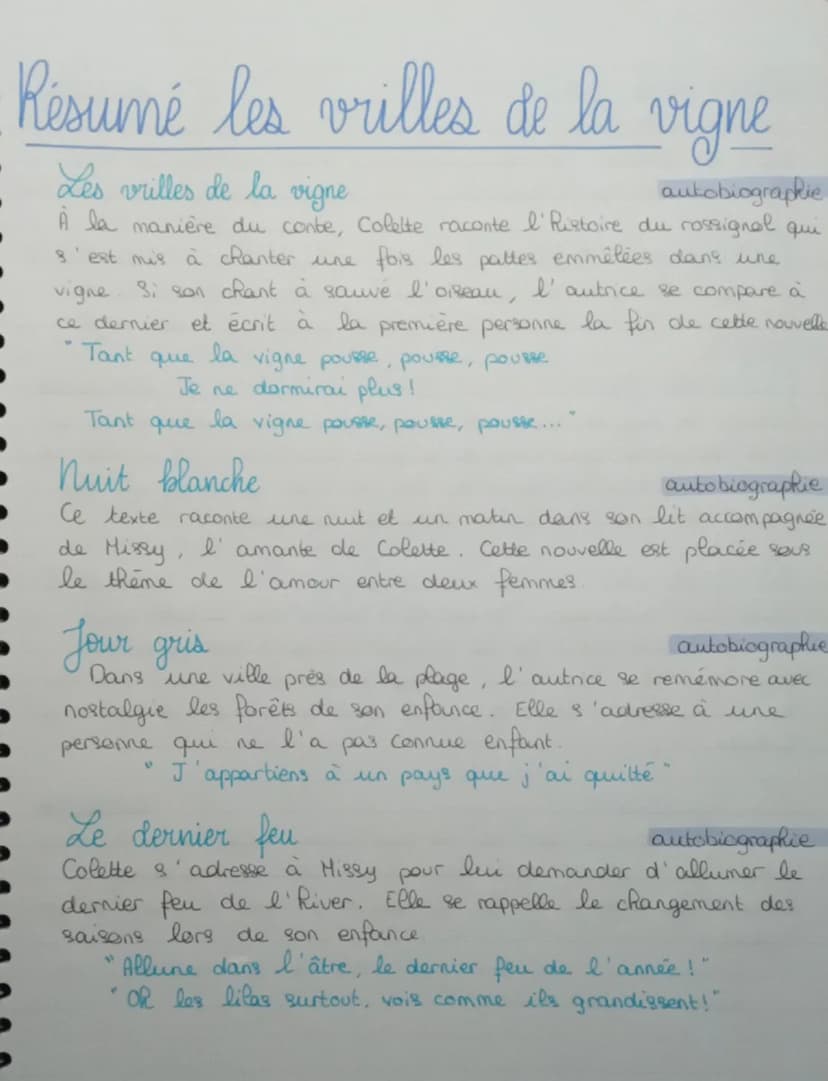 Résumé les vrilles de la vigne
Les vrilles de la vigne autobiographie
À la manière du conte, Colette raconte l'histoire du rossignol qui
s'est mis à chanter une fois les pattes emmêlées dans une
vigne. Si son chant à sauvé l'oiseau, l'autrice se compare à
ce dernier et écrit à la première personne la fin de cette nouvelle
"Tant que la vigne pousse, pousse, pousse
Je ne dormirai plus!
Tant que la vigne pousse, pousse, pousse..."
Nuit blanche autobiographie
Ce texte raconte une nuit et un matin dans son lit accompagnée
de Missy, l'amante de Colette. Cette nouvelle est placée sous
le thème de l'amour entre deux femmes.
Jour gris autobiographie
Dans une ville près de la plage, l'autrice se remémore avec
nostalgie les forêts de son enfance. Elle s'adresse à une
personne qui ne l'a pas connue enfant.
"J'appartiens à un pays que j'ai quitté"
Le dernier feu autobiographie
Colette s'adresse à Missy pour lui demander d'allumer le
dernier feu de l'hiver. Elle se rappelle le changement des
saisons lors de son enfance.
"Allume dans l'âtre, le dernier feu de l'année!"
"Oh les lilas surtout, vois comme ils grandissent!"